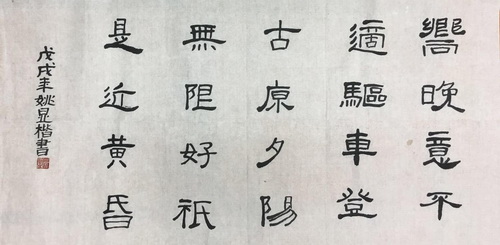 嚮晚意不
適驅車登
古原夕陽
無限好祇
是近黄昏
戊戌年姚昱楷書